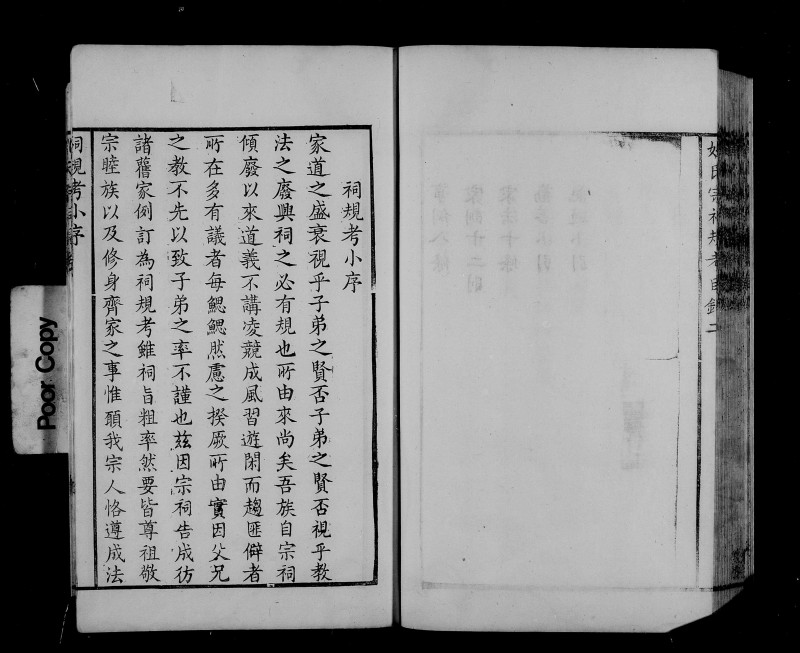 祠規考小序
家道之盛衰視乎子弟之賢否子弟之賢否視乎教
法之廢興祠之必有規也所由來尚矣吾族自宗祠
傾廢以來道義不講凌競成風習遊閑而趨匪僻者
所在多有議者每鰓鰓然慮之揆厥所由實因父兄
之教不先以致子弟之率不謹也茲因宗祠告成彷
諸舊家例訂為祠規考雖祠旨粗率然要皆尊祖敬
宗睦族以及修身齊家之事惟願我宗人恪遵成法
祠規考小序
氏宗祠規考目錄二
Poor Copy